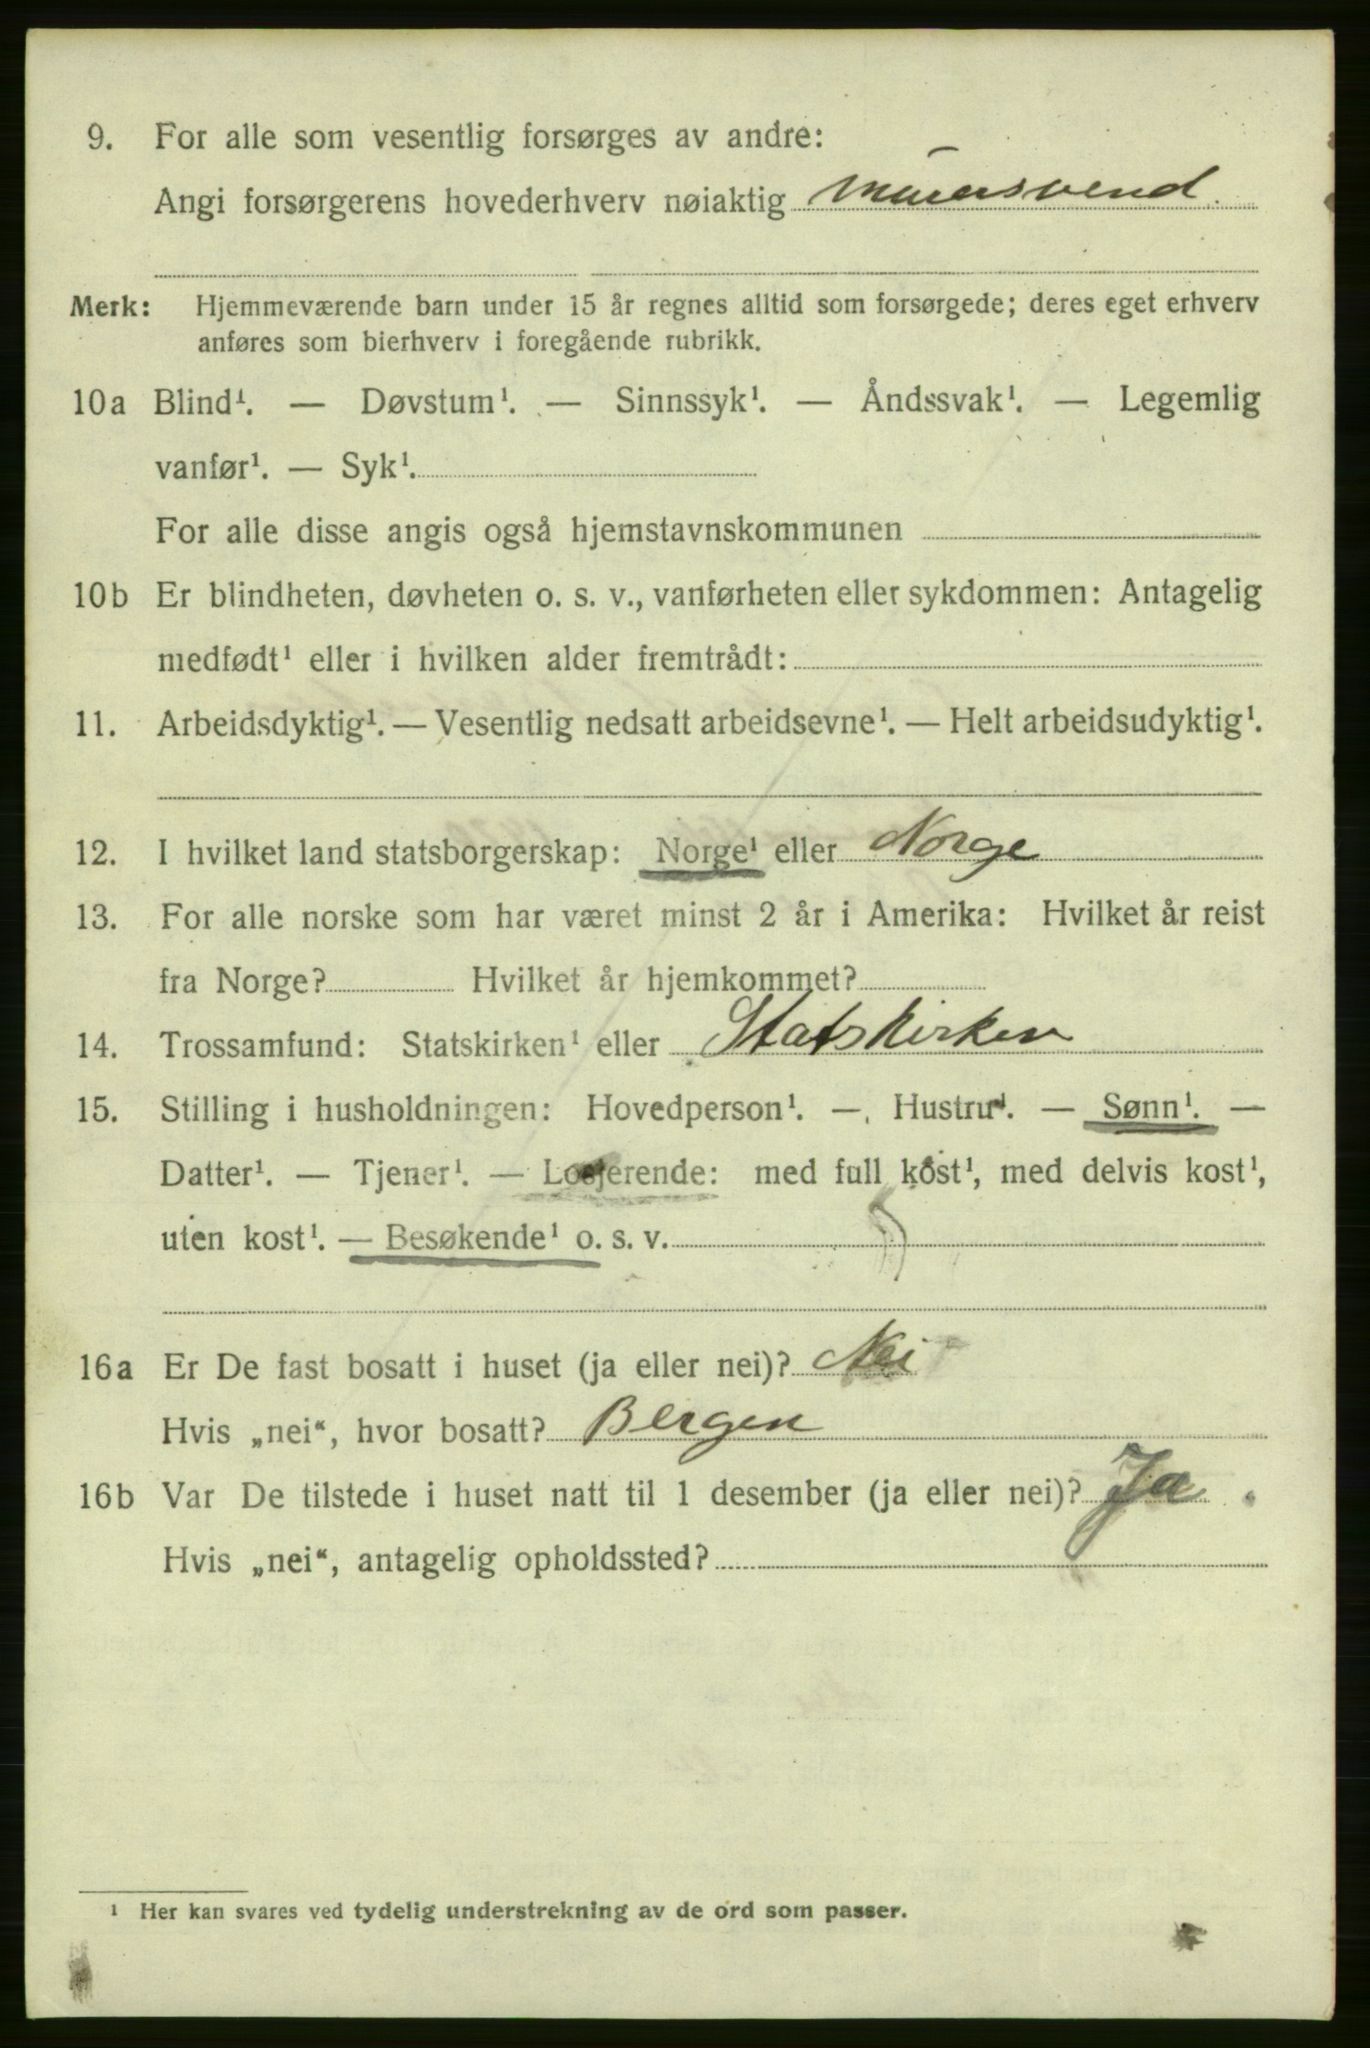 9. For alle som vesentlig forsørges av andre:
Angi forsørgerens hovederhverv nøiaktig Murersvend.
Merk: Hjemmeværende barn under 15 år regnes alltid som forsørgede; deres eget erhverv
anføres som bierhverv i foregående rubrikk.
10a Blind¹. — Døvstum¹. — Sinnssyk¹. — Åndssvak¹. — Legemlig
vanfør¹. — Syk¹.
For alle disse angis også hjemstavnskommunen
10b Er blindheten, døvheten o. s. v., vanførheten eller sykdommen: Antagelig
medfødt¹ eller i hvilken alder fremtrådt:
11. Arbeidsdyktig¹. — Vesentlig nedsatt arbeidsevne¹. — Helt arbeidsudyktig¹.
12. I hvilket land statsborgerskap: Norge¹ eller Norge
13. For alle norske som har været minst 2 år i Amerika: Hvilket år reist
fra Norge? Hvilket år hjemkommet?
14. Trossamfund: Statskirken¹ eller Statskirken
15. Stilling i husholdningen: Hovedperson¹. — Hustru¹. — Sønn¹. —
Datter¹. — Tjener¹. — Losjerende: med full kost¹, med delvis kost¹,
uten kost¹. — Besøkende¹ o. s. v.
16a Er De fast bosatt i huset (ja eller nei)? Nei
Hvis „nei“, hvor bosatt? Bergen
16b Var De tilstede i huset natt til 1 desember (ja eller nei)? Ja
Hvis „nei“, antagelig opholdssted?
¹ Her kan svares ved tydelig understrekning av de ord som passer.